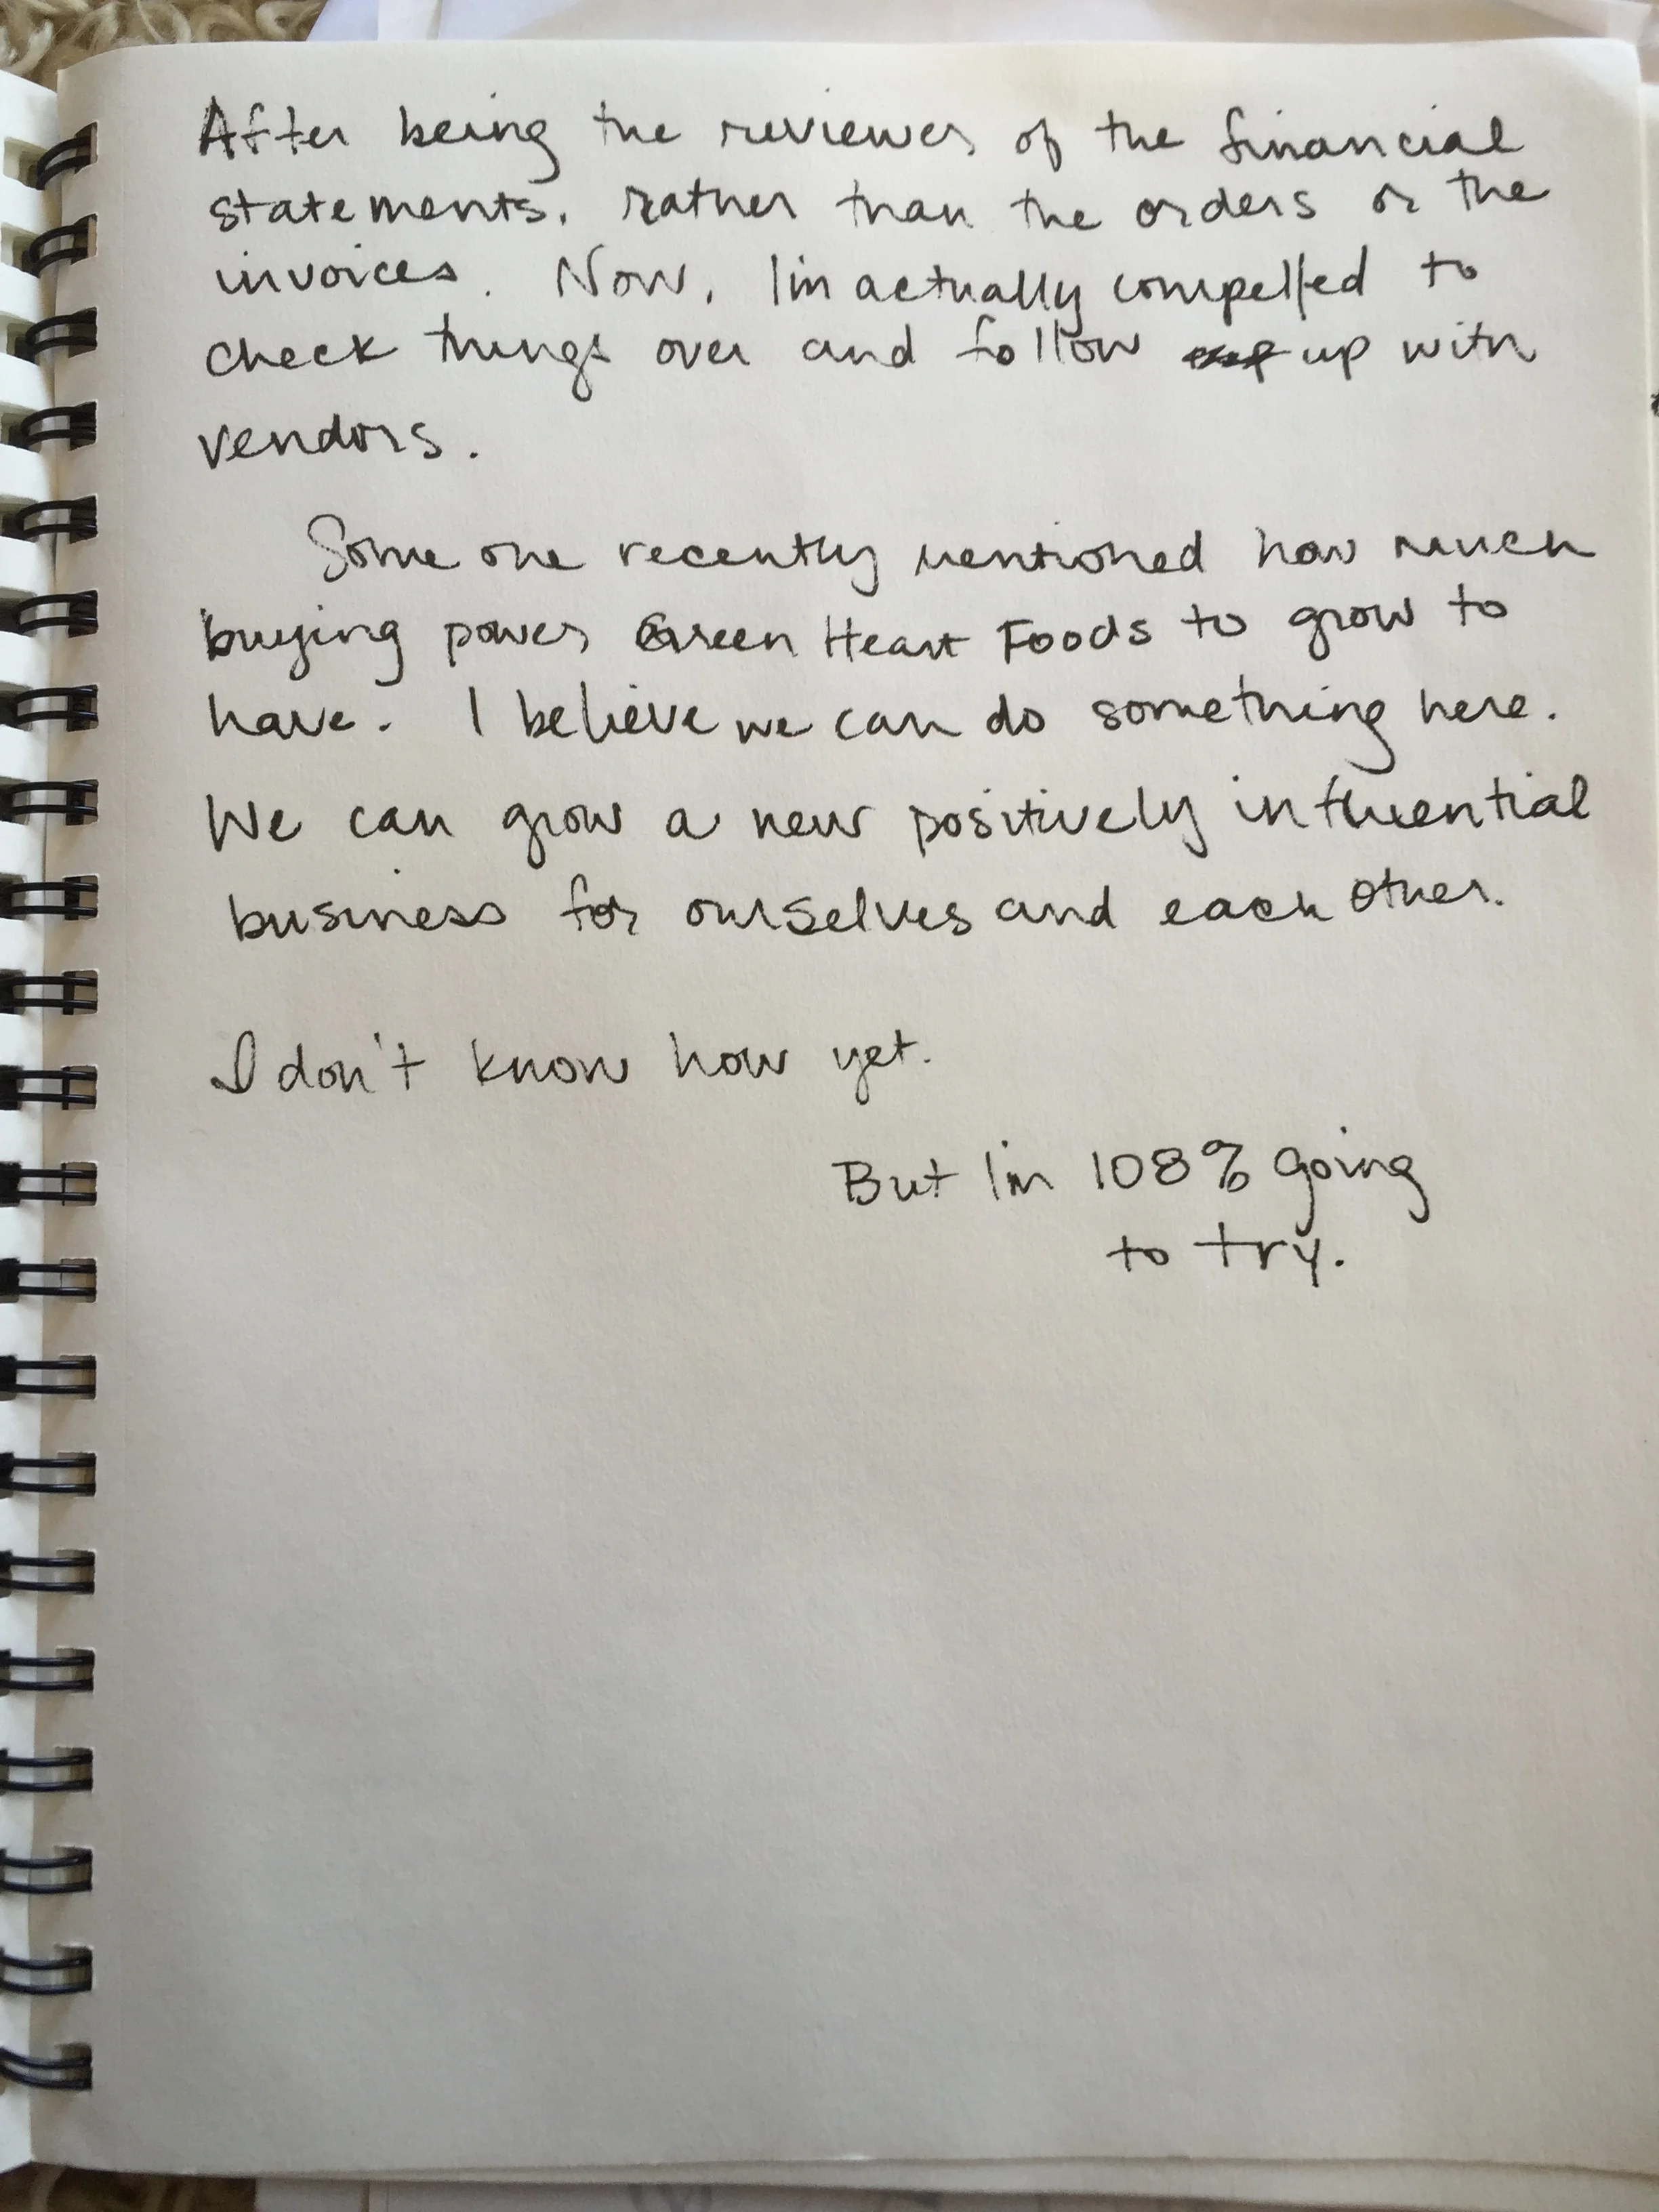 After being the reviewer of the financial
statements, rather than the orders or the
invoices. Now, I'm actually compelled to
check things over and follow up with
vendors.
Some one recently mentioned how much
buying power Green Heart Foods to grow to
have. I believe we can do something here.
We can grow a new positively influential
business for ourselves and each other.
I don't know how yet.
But I'm 108% going
to try.